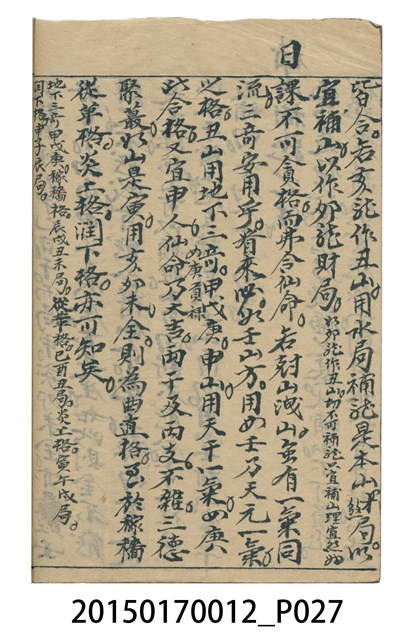 日
皆合若亥龍作丑山用水局補龍是本山財局以
宜補山以作卯龍財局如卯龍作丑山切不可補龍只宜補山理宜然也
課不可貪格而弗合仙命若尅山洩山縱有一氣同
流三奇安用乎看來必水壬山方用四壬乃天元一氣
之格丑山用地下三奇甲戊庚申山用天干一氣四庚
此合格又宜申人仙命乃大吉兩干及兩支不雜三德
四庚貢祿
聚叢如山是寅用亥卯未全則為曲直格至於稼穡
從革格炎上格潤下格亦可知矣
地下三奇甲戊庚稼穡格辰戌丑未局從革格巳酉丑局炎上格寅午戌局
潤下格申子辰局
20150170012_P027